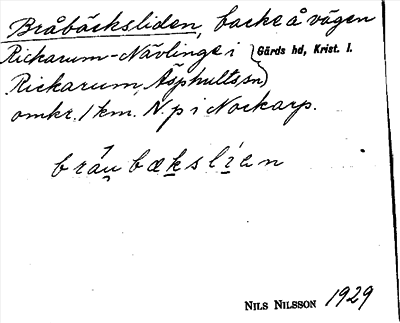 Bråbäcksliden, backe å vägen
Rickarum-Nävlinge i } Gärds hd, Krist. l.
Rickarum, Äsphults sn,
omkr. 1 km. N. p i Nockarp.
bråu̯bækslīən
NILS NILSSON 1929